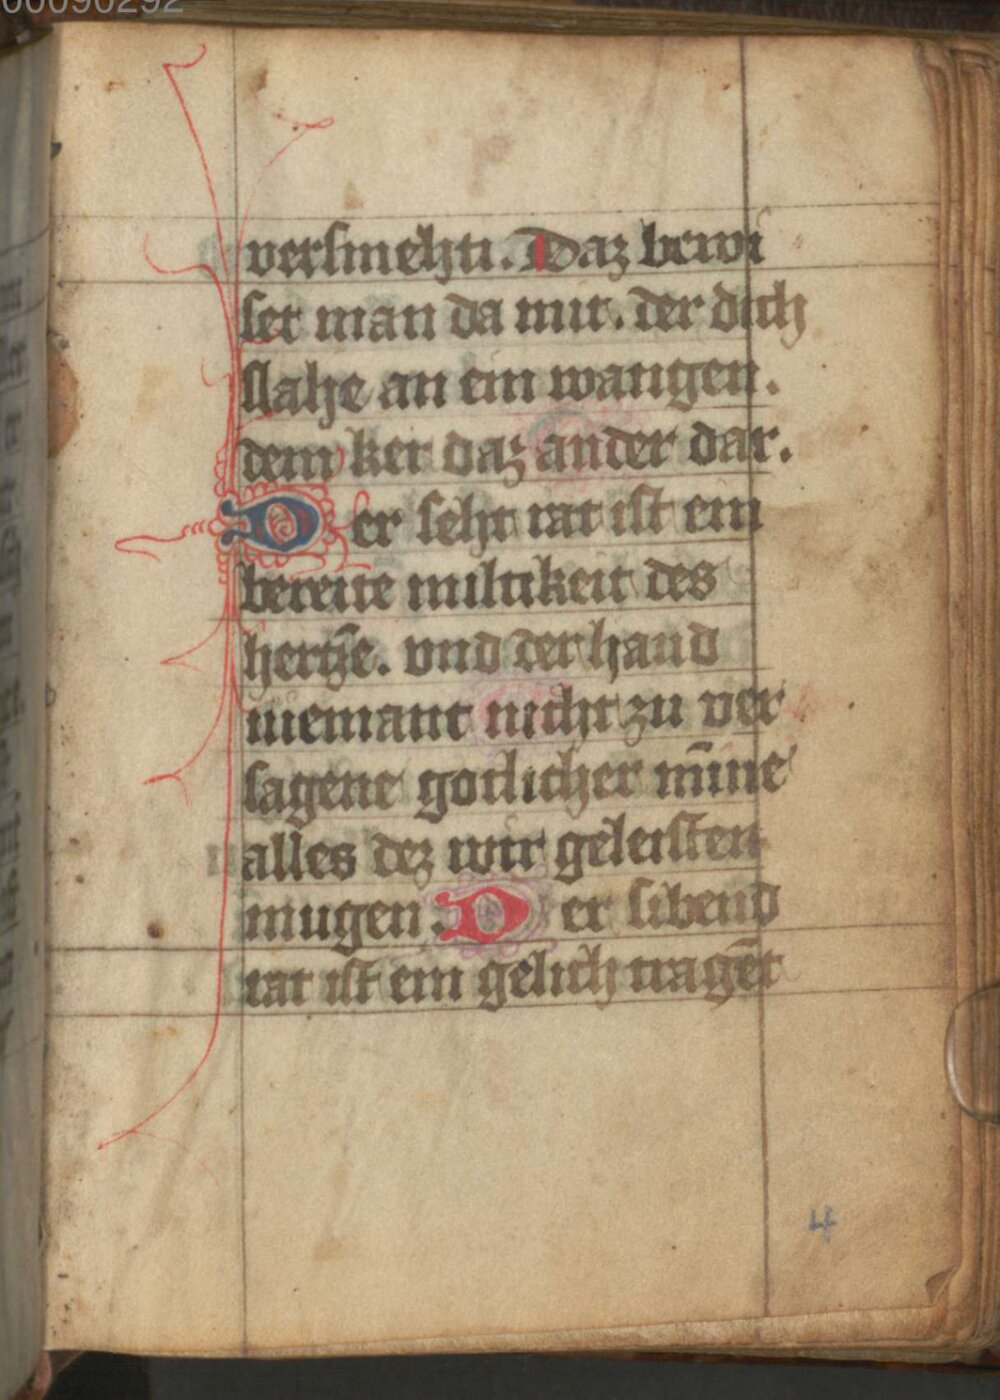 00090292
versmehti. Daz bewi
set man da mit. der dich
slahe an ein wangen.
dem ker daz ander dar.
Der seht rat ist ein
bereite miltikeit des
hertze. vnd der hand
niemant nicht zu ver
sagene gotlicher mīne
alles dez wir geleisten
mugen. Der sibend
rat ist ein gelich tragēt
4